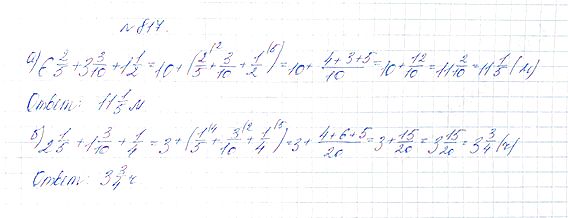 № 817.
а) 6 2/5 + 3 3/10 + 1 1/2 = 10 + (2/5^(2 + 3/10 + 1/2^(5) = 10 + (4+3+5)/10 = 10 + 12/10 = 11 2/10 = 11 1/5 (м)
Ответ: 11 1/5 м
б) 2 1/5 + 1 3/10 + 1/4 = 3 + (1/5^(4 + 3/10^(2 + 1/4^(5) = 3 + (4+6+5)/20 = 3 + 15/20 = 3 15/20 = 3 3/4 (ч)
Ответ: 3 3/4 ч.